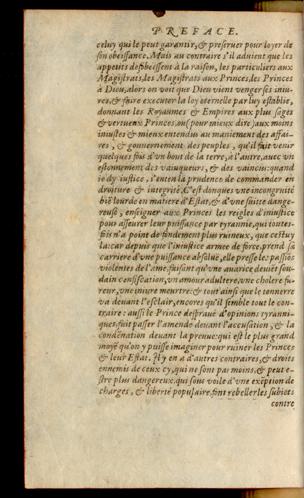 PREFACE.
celuy qui le peut garantir, & preseruer pour loyer de
son obeissance. Mais au contraire s'il aduient que les
appetits desobeissent à la raison, les particuliers aux
Magistrats, les Magistrats aux Princes, les Princes
à Dieu, alors on voit que Dieu vient venger ses iniu-
res, & faire executer la loy eternelle par luy establie,
donnant les Royaumes & Empires aux plus sages
& vertueux Princes, ou pour mieux dire aux moins
iniustes & mieux entendus au maniement des affai-
res, & gouuernement des peuples, qu'il fait venir
quelques fois d'vn bout de la terre, à l'autre, auec vn
estonnement des vainqueurs, & des vaincus: quand
ie dy iustice, i'enten la prudence de commander en
droiture & integrité. C'est donques vne incongruité
bië lourde en matiere d'Estat, & d'vne suitte dange-
reuse, enseigner aux Princes les reigles d'iniustice
pour asseurer leur puissance par tyrannie, qui toutes-
fois n'a point de fondement plus ruineux, que cestuy
la: car depuis que l'iniustice armee de force, prend sa
carriere d'vne puissance absolue, elle presse les passiōs
violentes de l'ame, faisant qu'vne auarice deuiët sou-
dain confiscation, vn amour adultere, vne cholere fu-
reur, vne iniure meurtre: & tout ainsi que le tonnerre
va deuant l'esclair, encores qu'il semble tout le con-
traire: aussi le Prince depraué d'opinions tyranni-
ques, fait passer l'amende deuant l'accusation, & la
condēnation deuant la preuue: qui est le plus grand
moyē qu'on puisse imaginer pour ruiner les Princes
& leur Estat. Il y en a d'autres contraires, & droits
ennemis de ceux cy, qui ne sont pas moins, & peut e-
stre plus dangereux, qui sous voile d'vne exēption de
charges, & liberté populaire, font rebeller les subiets
contre